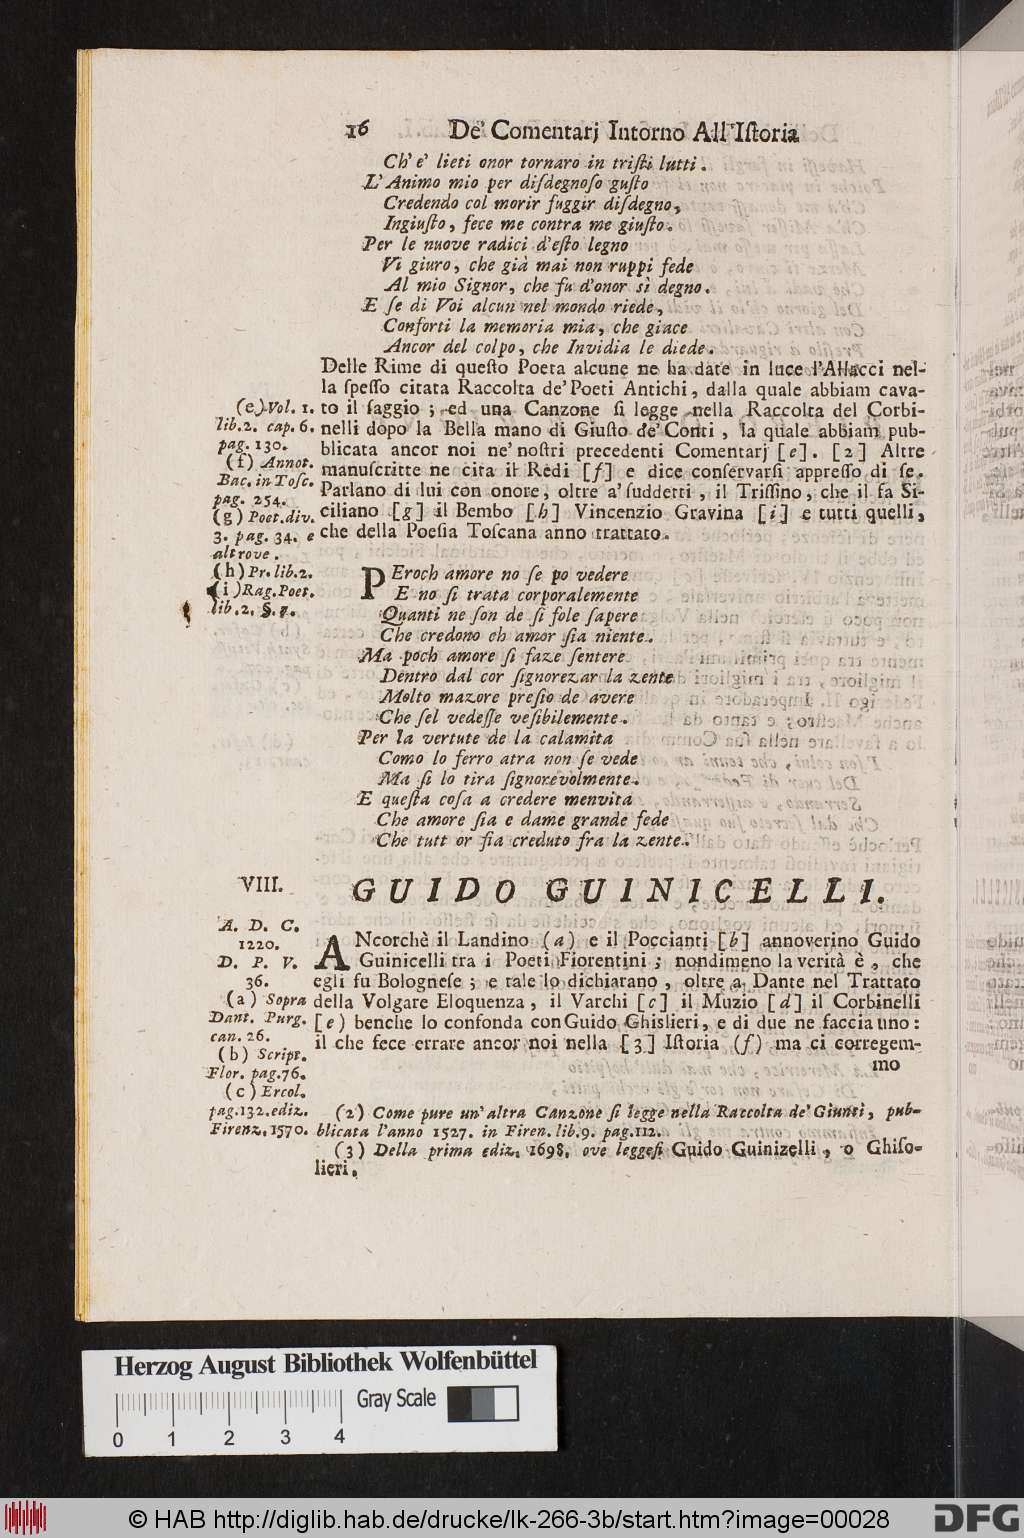 16 De' Comentarj Intorno All'Iſtoria
Ch' e' lieti onor tornaro in triſti lutti.
L'Animo mio per diſdegnoſo guſto
Credendo col morir fuggir diſdegno,
Ingiuſto, fece me contra me giuſto.
Per le nuove radici d'eſto legno
Vi giuro, che già mai non ruppi fede
Al mio Signor, che fu d'onor sì degno.
E ſe di Voi alcun nel mondo riede,
Conforti la memoria mia, che giace
Ancor del colpo, che Invidia le diede.
Delle Rime di queſto Poeta alcune ne ha date in luce l'Allacci nel-
la ſpeſſo citata Raccolta de' Poeti Antichi, dalla quale abbiam cava-
to il ſaggio; ed una Canzone ſi legge nella Raccolta del Corbi-
nelli dopo la Bella mano di Giuſto de' Conti, la quale abbiam pub-
blicata ancor noi ne' noſtri precedenti Comentarj [e]. [2] Altre
manuſcritte ne cita il Redi [f] e dice conſervarſi appreſſo di ſe.
Parlano di lui con onore, oltre a' ſuddetti, il Triſſino, che il fa Si-
ciliano [g] il Bembo [h] Vincenzio Gravina [i] e tutti quelli,
che della Poeſia Toſcana anno trattato.
(e) Vol. 1.
lib.2. cap. 6.
pag. 130.
(f) Annot.
Bac. in Toſc.
pag. 254.
(g) Poet.div.
3. pag. 34. e
altrove.
(h) Pr.lib.2.
(i) Rag.Poet.
lib.2. §.7.
PEroch amore no ſe po vedere
E no ſi trata corporalemente
Quanti ne ſon de ſi fole ſapere
Che credono ch amor ſia niente.
Ma poch amore ſi faze ſentere
Dentro dal cor ſignorezar la zente
Molto mazore preſio de avere
Che ſel vedeſſe veſibilemente.
Per la vertute de la calamita
Como lo ferro atra non ſe vede
Ma ſi lo tira ſignorevolmente.
E queſta coſa a credere menvita
Che amore ſia e dame grande fede
Che tutt or ſia creduto fra la zente.
VIII. GUIDO GUINICELLI.
A. D. C.
1220.
D. P. V.
36.
(a) Sopra
Dant. Purg.
can. 26.
(b) Script.
Flor. pag.76.
(c) Ercol.
pag.132.ediz.
Firenz.1570.
ANcorchè il Landino (a) e il Poccianti [b] annoverino Guido
Guinicelli tra i Poeti Fiorentini; nondimeno la verità è, che
egli fu Bologneſe; e tale lo dichiarano, oltre a Dante nel Trattato
della Volgare Eloquenza, il Varchi [c] il Muzio [d] il Corbinelli
[e) benche lo confonda con Guido Ghislieri, e di due ne faccia uno:
il che fece errare ancor noi nella [3] Iſtoria (f) ma ci corregem-
mo
(2) Come pure un' altra Canzone ſi legge nella Raccolta de' Giunti, pub-
blicata l'anno 1527. in Firen. lib.9. pag.112.
(3) Della prima ediz. 1698. ove leggeſi Guido Guinizelli, o Ghiſo-
lieri.
Herzog August Bibliothek Wolfenbüttel
Gray Scale
0 1 2 3 4
© HAB http://diglib.hab.de/drucke/lk-266-3b/start.htm?image=00028
DFG